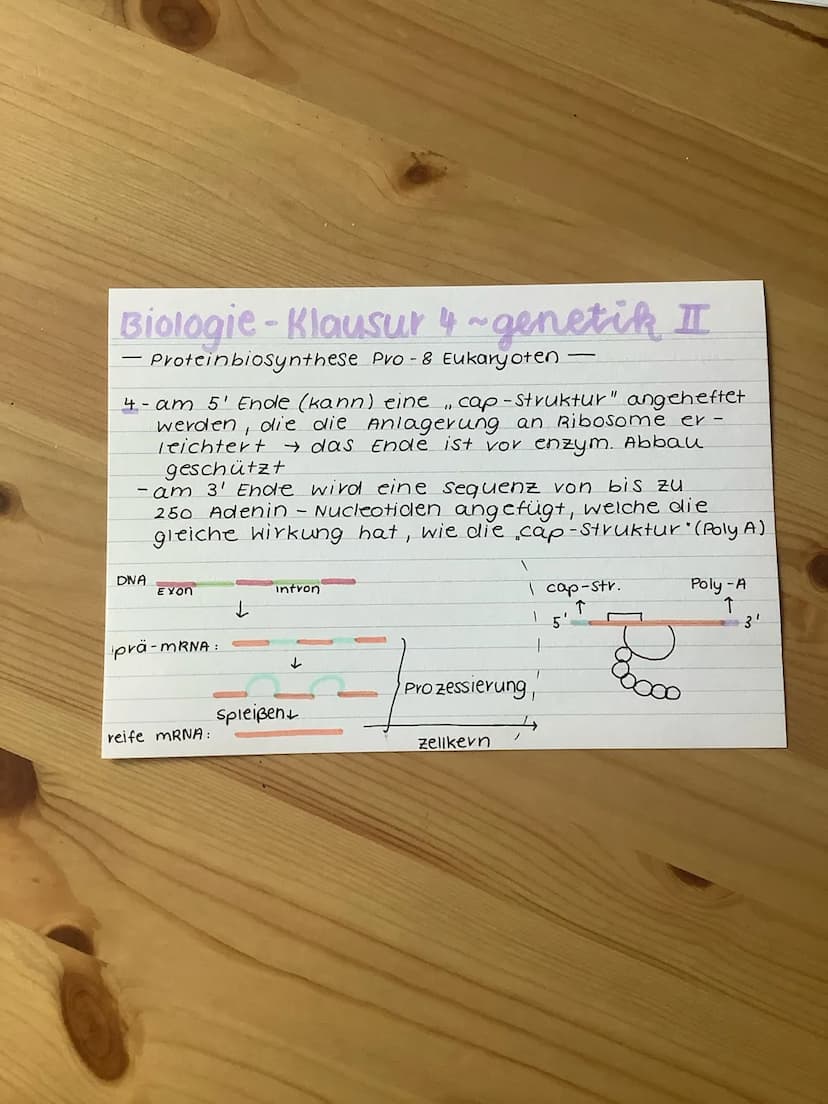 Biologie - Klausur 4 ~ genetik II
— Proteinbiosynthese Pro- & Eukaryoten —
4 - am 5' Ende (kann) eine „cap-Struktur" angeheftet
werden, die die Anlagerung an Ribosome er-
leichtert → das Ende ist vor enzym. Abbau
geschützt
- am 3' Ende wird eine Sequenz von bis zu
250 Adenin-Nucleotiden angefügt, welche die
gleiche Wirkung hat, wie die „cap-Struktur" (Poly A)
DNA
Exon
Intron
↓
prä-mRNA:
↓
Spleißen↓
reife mRNA:
Prozessierung
zellkern
cap-Str.
Poly-A
↑ ↑
5' 3'